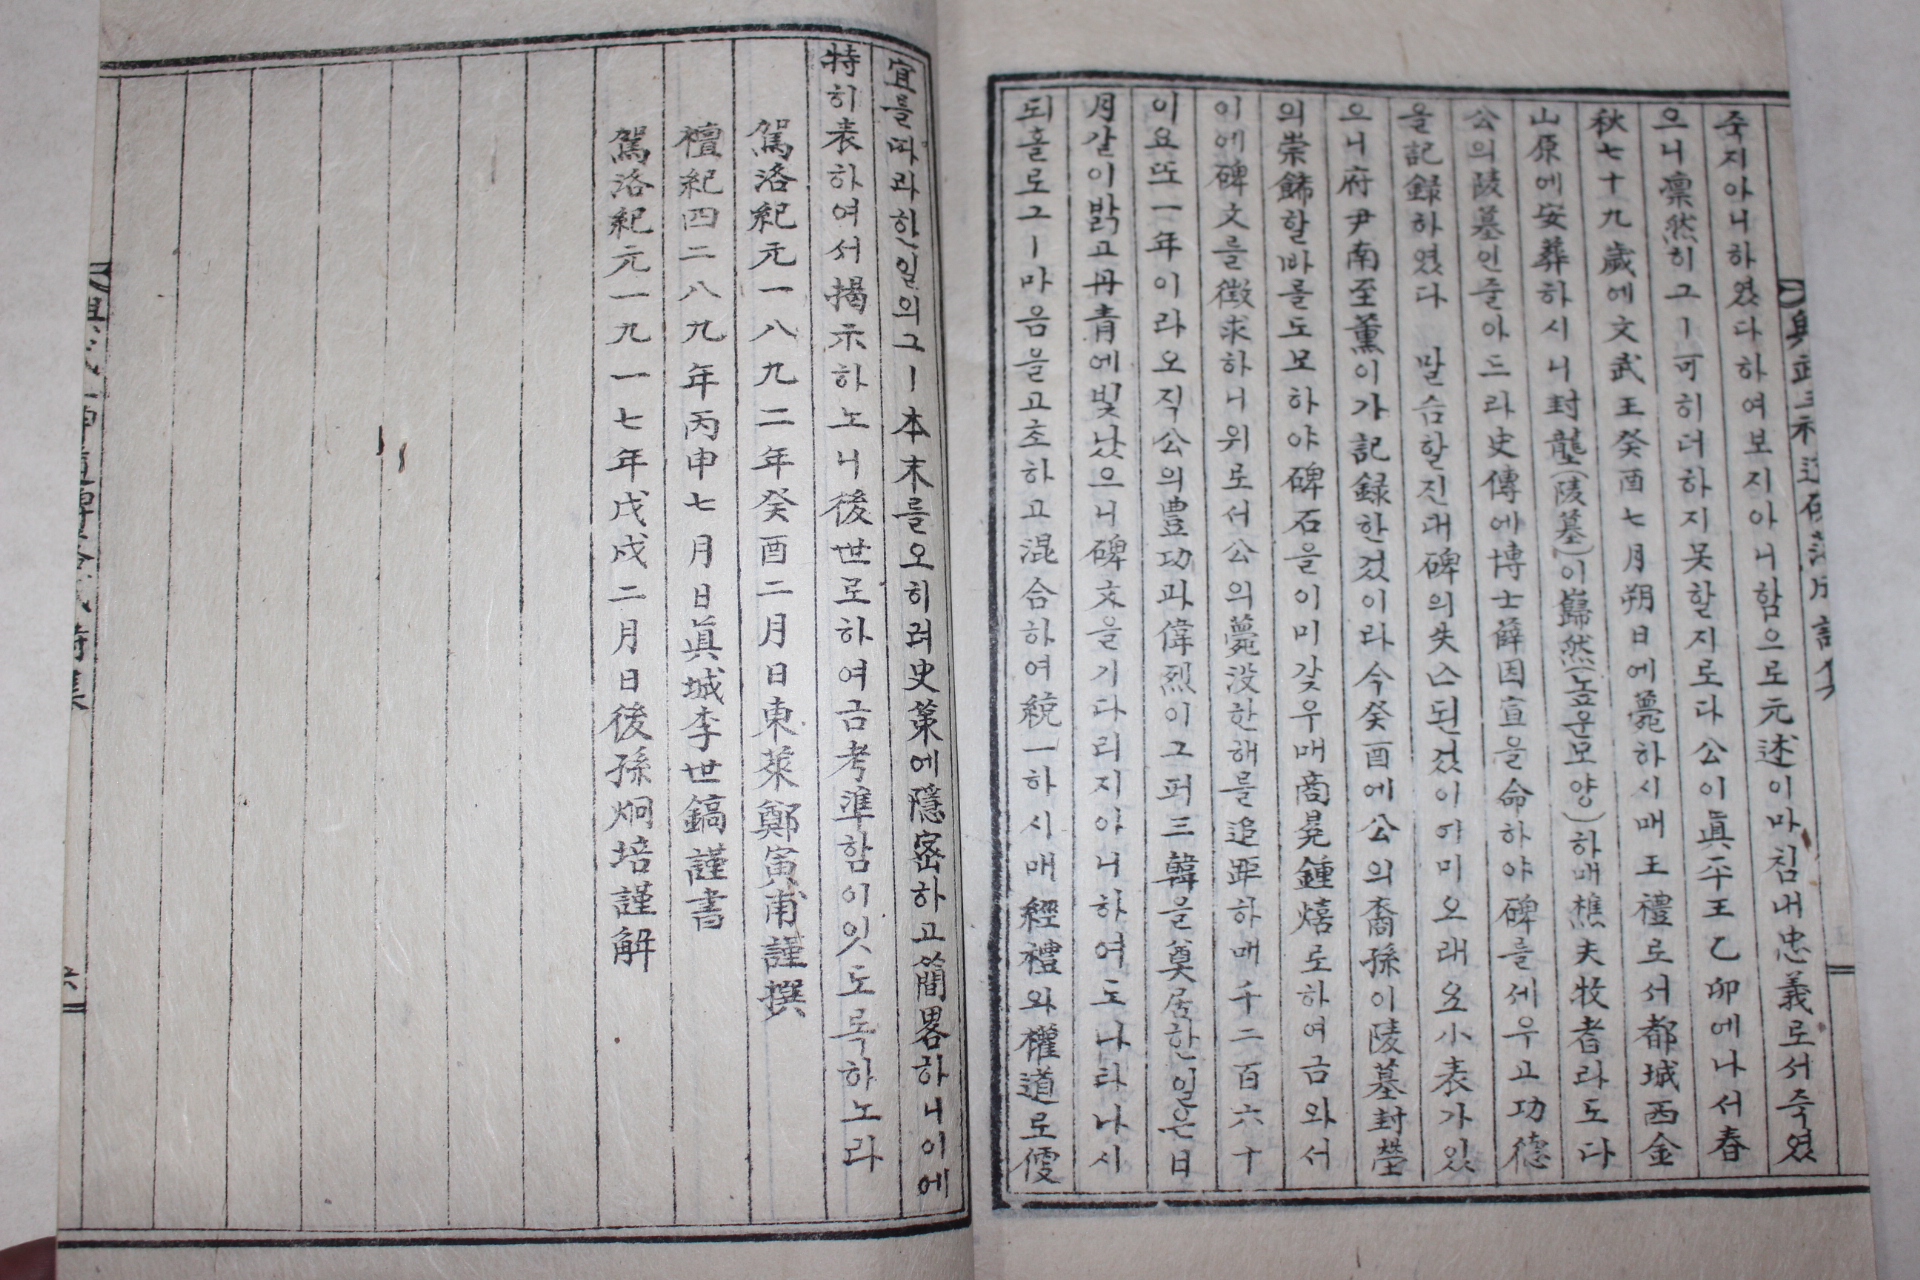 죽지아니하였다하여보지아니함으로元述이마침내忠義로서죽였
으니凜然히그ㅣ可히더하지못할지로다公이眞平王乙卯에나서春
秋七十九歲에文武王癸酉七月朔日에薨하시매王禮로서都城西金
山原에安葬하시니封壟(陵墓)이巋然(높운모양)하매樵夫牧者라도다
公의陵墓인줄아드라史傳에博士薛因宣을命하야碑를세우고功德
을記録하였다 말슴할진대碑의失亡된것이이미오래요小表가있
으니府尹南至薰이가記録한것이라今癸酉에公의裔孫이陵墓封塋
의崇飾할바를도모하야碑石을이미갖우매商晃鍾熺로하여금와서
이에碑文를徵求하니위로서公의薨沒한해를追距하매千二百六十
이요또一年이라오직公의豊功과偉烈이그퍼三韓을奠居한일은日
月갈이밝고丹青에빛났으니碑文을기다리지아니하여도나타나시
되홀로그ㅣ마음을고초하고混合하여統一하시매經禮와權道로傻
宜를따라한일의그ㅣ本末를오히려史策에隱密하고簡畧하니이에
特히表하여서揭示하노니後世로하여금考準함이잇도록하노라
駕洛紀元一八九二年癸酉二月日東萊鄭寅甫謹撰
檀紀四二八九年丙申七月日眞城李世鎬謹書
駕洛紀元一九一七年戊戌二月日後孫炯培謹解
六